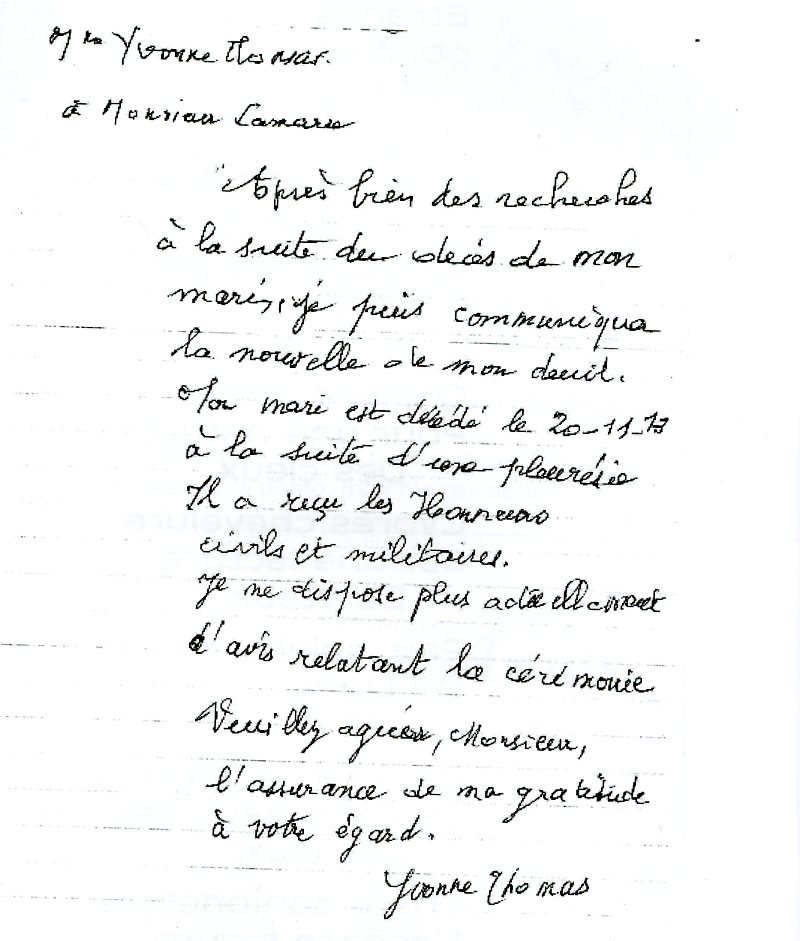 Mme Yvonne Thomas.
à Monsieur Lamarre
Après bien des recherches
à la suite du décès de mon
mari, je puis communiqua
la nouvelle de mon deuil.
Mon mari est décédé le 20-11-73
à la suite d'une pleurésie
Il a reçu les Honneurs
civils et militaires.
Je ne dispose plus actuellement
d'avis relatant la cérémonie
Veuillez agréer, Monsieur,
l'assurance de ma gratitude
à votre égard.
Yvonne Thomas